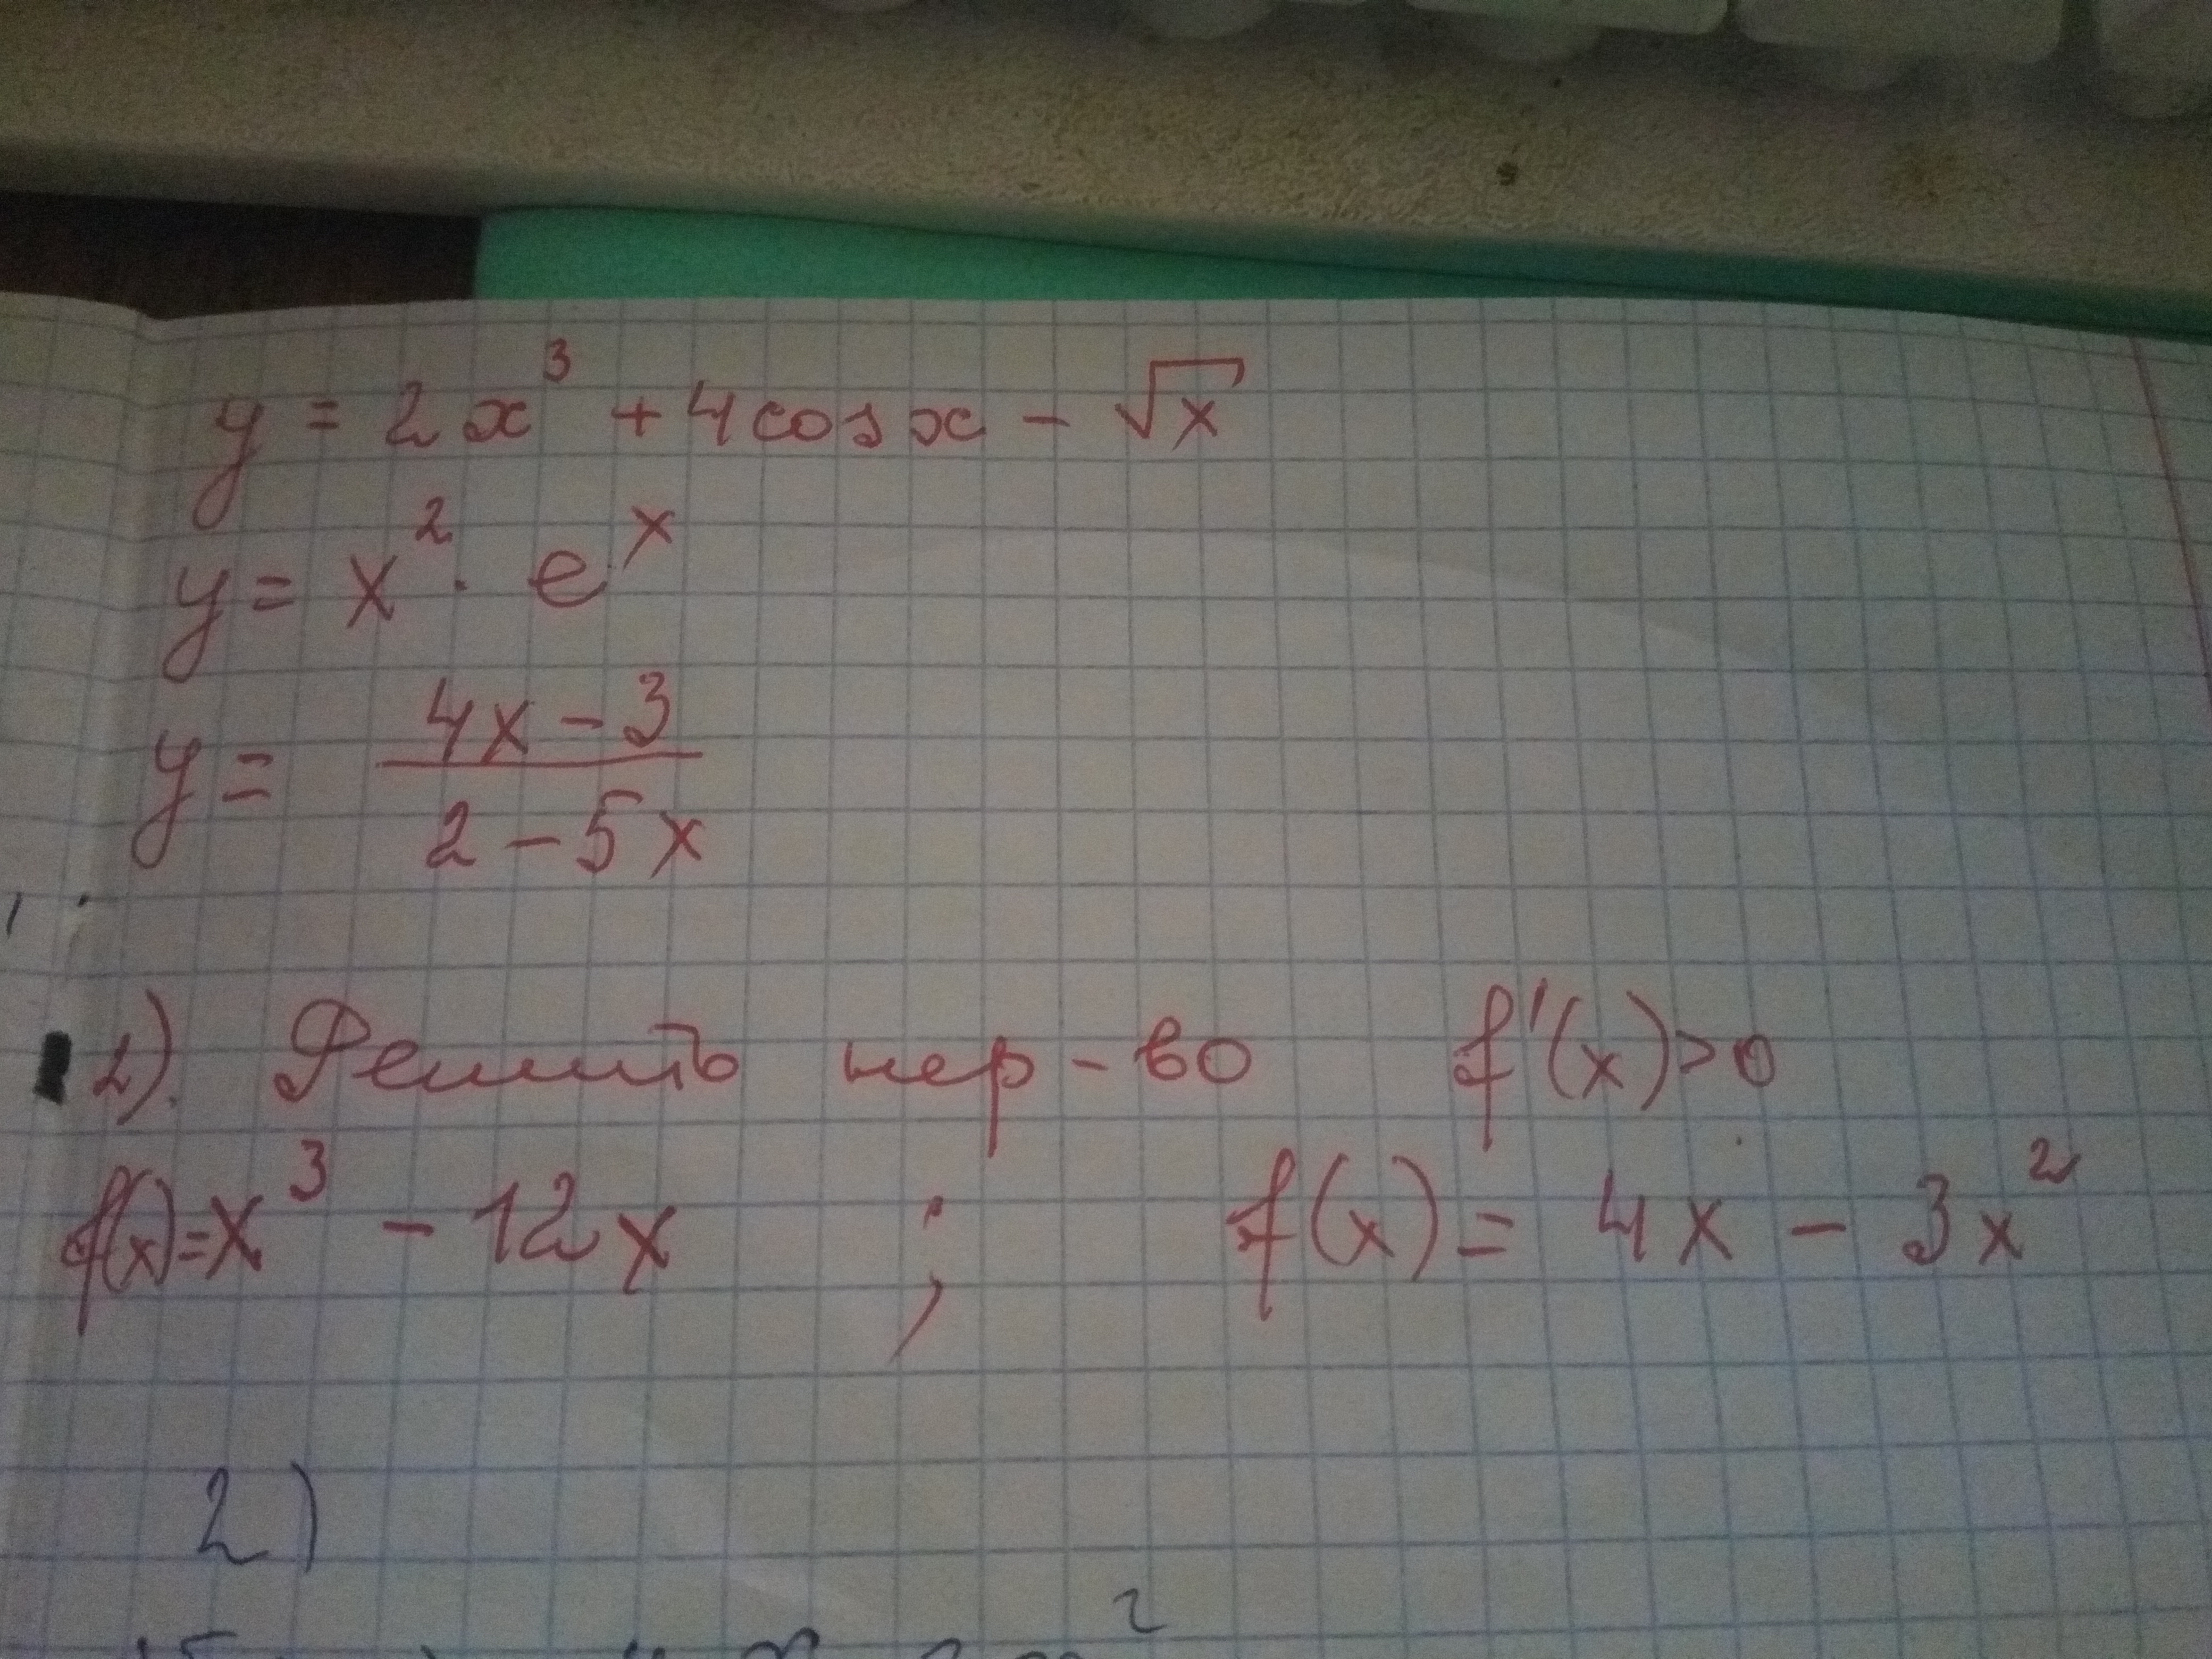 y = 2x³ + 4cosx - √x
y = x² · eˣ
y = (4x - 3)/(2 - 5x)
2). Решить нер-во f'(x)>0
f(x)=x³ - 12x ; f(x) = 4x - 3x²
2)